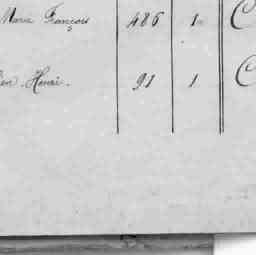 Marie François 486 1 C
en Henri. 91 1 C